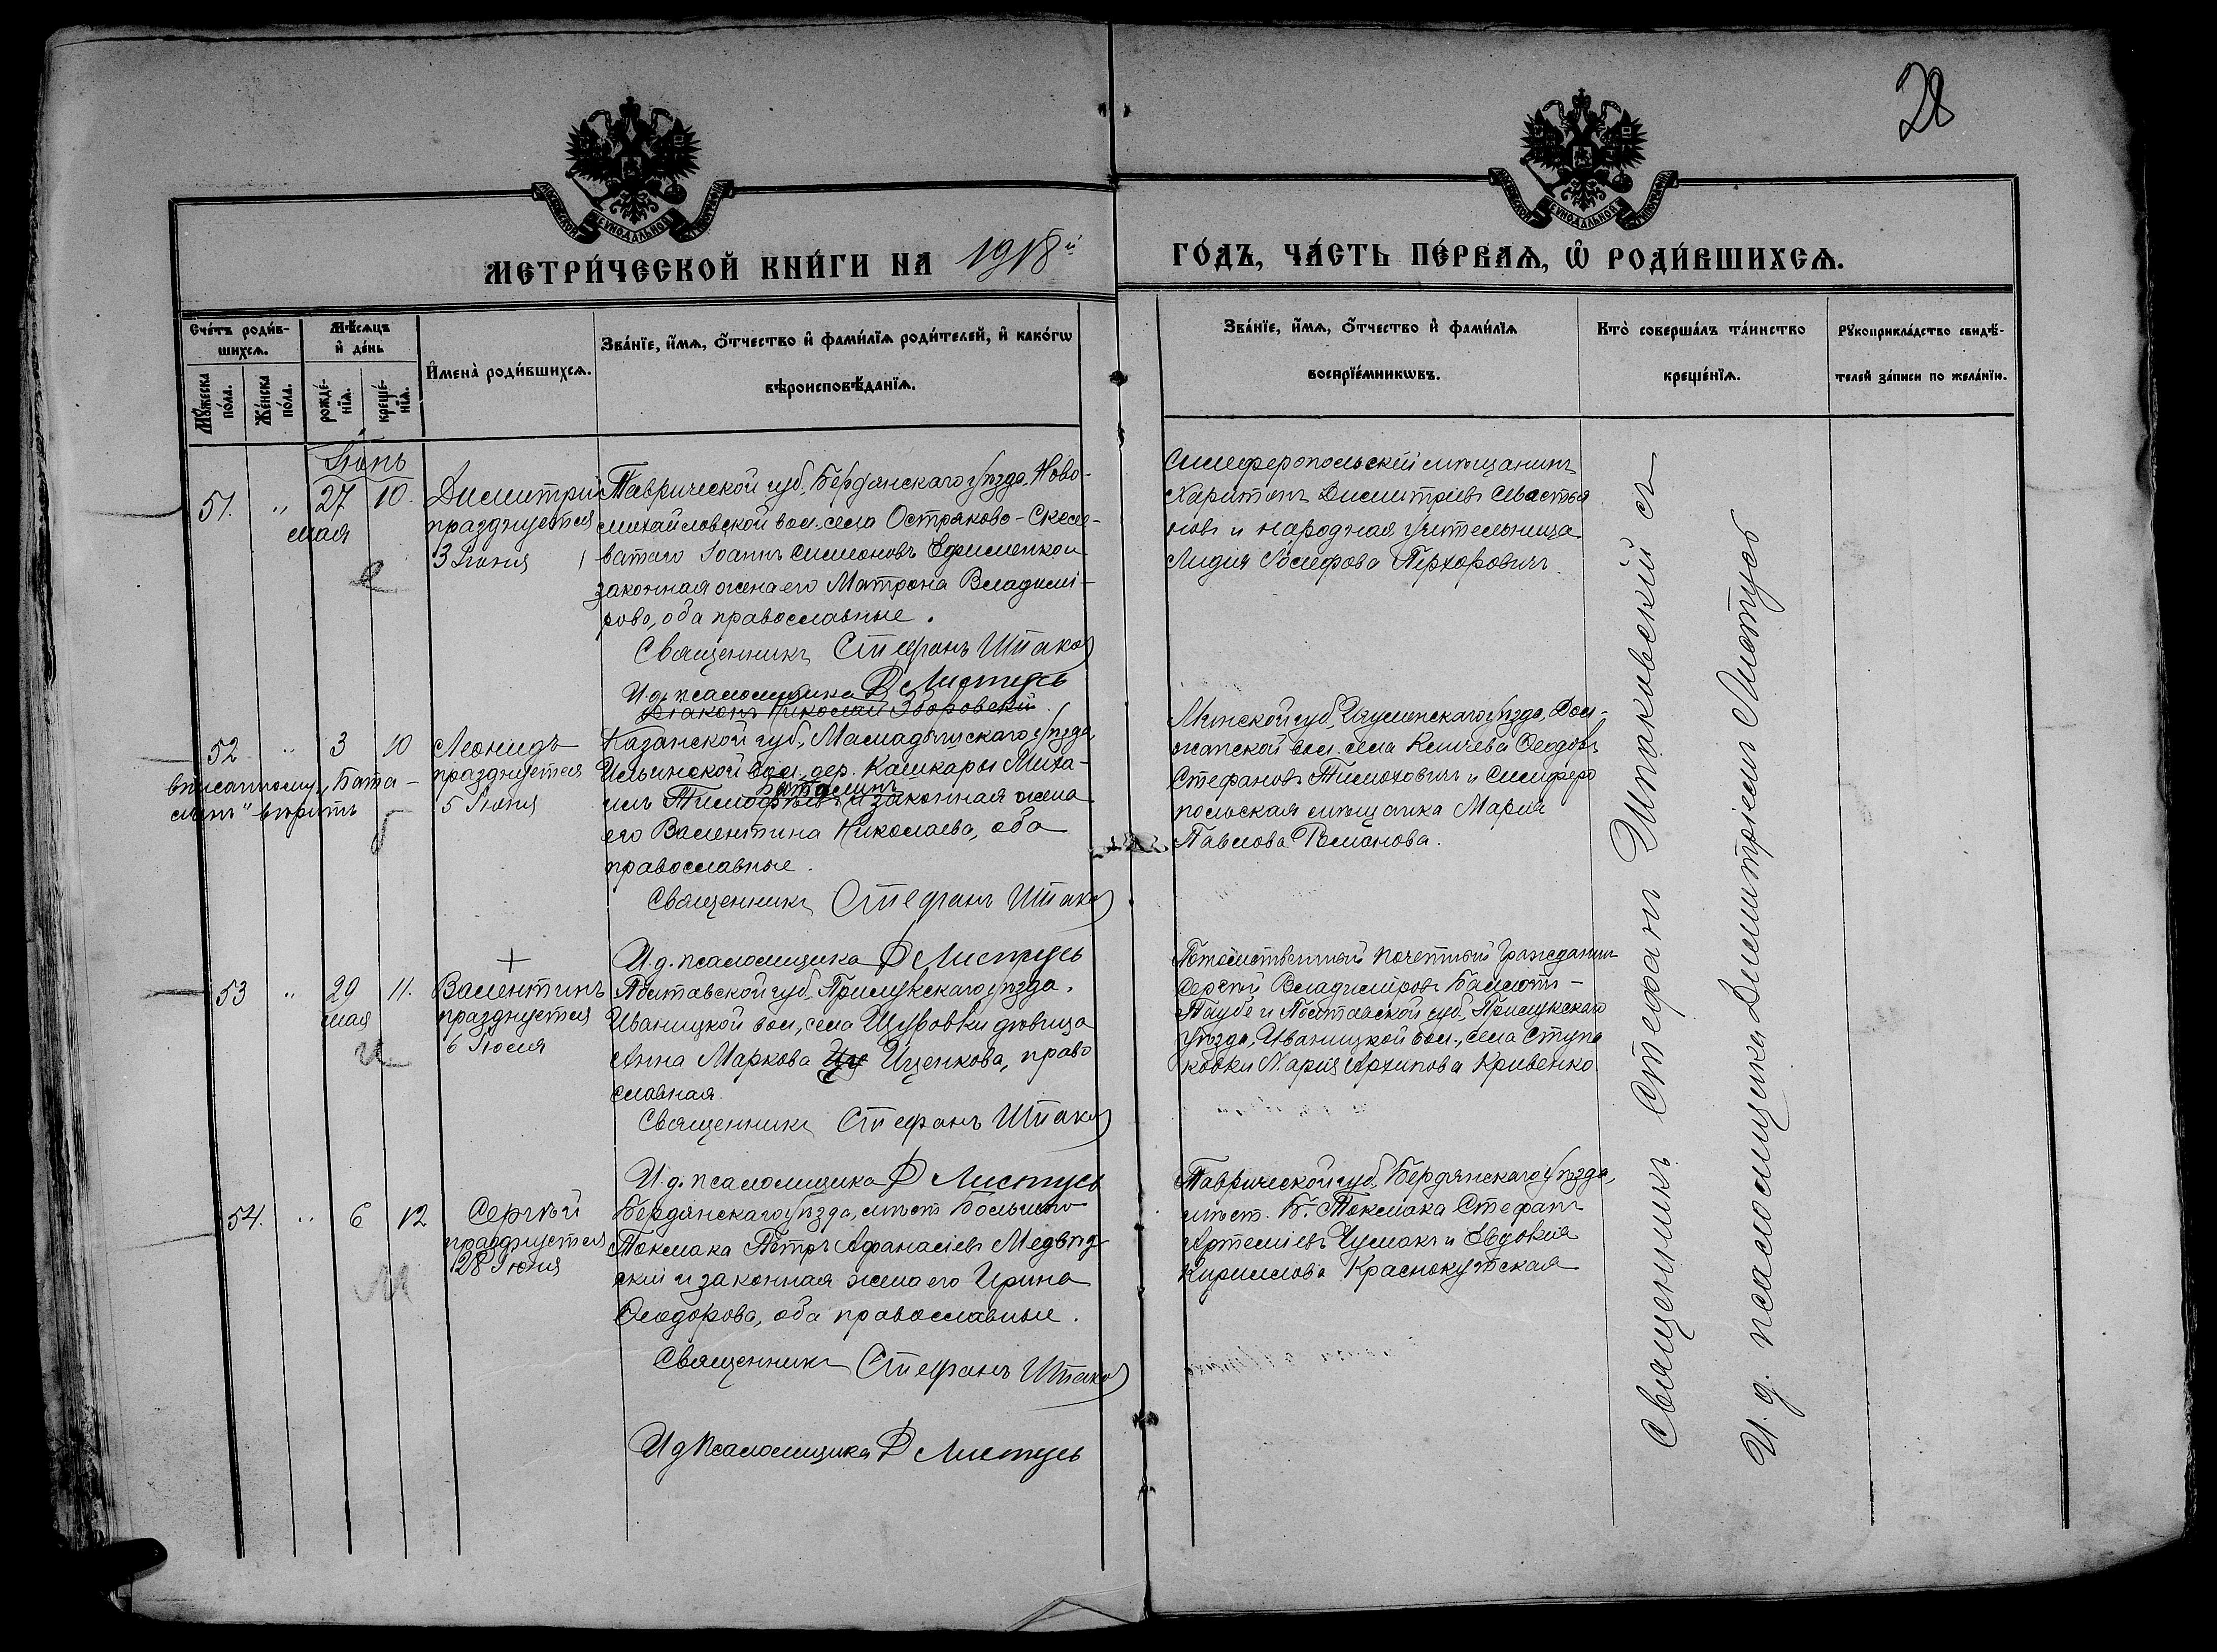 28
МОСКОВСКОЙ СѴНОДАЛЬНОЙ ТИПОГРАФІИ
МОСКОВСКОЙ СѴНОДАЛЬНОЙ ТИПОГРАФІИ
МЕТРИ́ЧЕСКОЙ КНИ́ГИ НА 1918й
ГО́ДЪ, ЧА́СТЬ ПЕ́РВАѦ, Ѽ РОДИ́ВШИХСѦ.
Сче́тъ роди́в-
шихсѧ.
Мꙋ́жеска по́ла.
Же́нска по́ла.
Мѣ́сѧцъ и҆ де́нь
рожде́-нїѧ.
креще́-нїѧ.
И҆мена̀ роди́вшихсѧ.
Зва́нїе, и҆́мѧ, ѻ҆́тчество и҆ фами́лїѧ роди́телей, и҆ како́гѡ
вѣроисповѣ́данїѧ.
Зва́нїе, и҆́мѧ, ѻ҆́тчество и҆ фами́лїѧ
воспрїе́мникѡвъ.
Кто̀ соверша́лъ та́инство
креще́нїѧ.
Рꙋкоприкла́дство свидѣ́-
телей за́писи по жела́нїю.
Іюнь
51. " 27 10.
мая
Димитрій
празднуется
3 Іюня
Таврической губ., Бердянскаго уѣзда, Ново-
михайловской вол. села Остряково-Скеле-
ватаго Іоаннъ Симеоновъ Ефименко и
законная жена его Матрона Владимі-
рова, оба православные.
Священникъ Стефанъ Шпак
И.д. псаломщика Д Листусъ
Діаконъ Николай Зборовскій
Симферопольскій мѣщанинъ
Харитонъ Димитріевъ Севастья
новъ и народная учительница
Лидія Іосифова
52 " 3 10
вписанному „Бата-
линъ" вѣрить
Леонидъ
празднуется
5 Іюня
Казанской губ., Мамадышскаго уѣзда,
Ильинской вол., дер. Кашкары Миха-
Баталинъ
илъ Тимофѣевъ и законная жена
его Валентина Николаева, оба
православные.
Священникъ Стефанъ Шпак
И.д. псаломщика Д Листусъ
Минской губ., Игуменскаго уѣзда, Дол-
жанской вол. села Кличева Ѳеодоръ
Стефановъ Тимоховичъ и Симферо
польская мѣщанка Марія
Павлова Романова.
53 " 29 11.
мая
Валентинъ
празднуется
6 Іюля
Полтавской губ., Прилукскаго уѣзда,
Иваницкой вол., села Щуровки дѣвица
Анна Маркова Ищенкова, право
славная.
Священникъ Стефанъ Шпак
И.д. псаломщика Д Листусъ
Потомственный почетный гражданин
Сергѣй Владиміровъ
Таубе и Полтавской губ., Прилукскаго
уѣзда, Иваницкой вол., села Ступа
ковки Марія Архипова Кривенко
54. " 6 12
Сергѣй
празднуется
28 Іюня
Бердянскаго уѣзда, мѣст. Большого
Токмака Петръ Афанасіевъ Медвѣд-
скій и законная жена его Ирина
Ѳеодорова, оба православные.
Священникъ Стефанъ Шпак
И д псаломщика Д Листусъ
Таврической губ., Бердянскаго уѣзда,
мѣст. Б. Токмака Стефанъ
Артеміевъ Чумакъ и Евдокія
Кириллова Краснокутская
Священникъ Стефанъ Шпаковскій съ
И. д. псаломщика Димитріемъ Листусъ